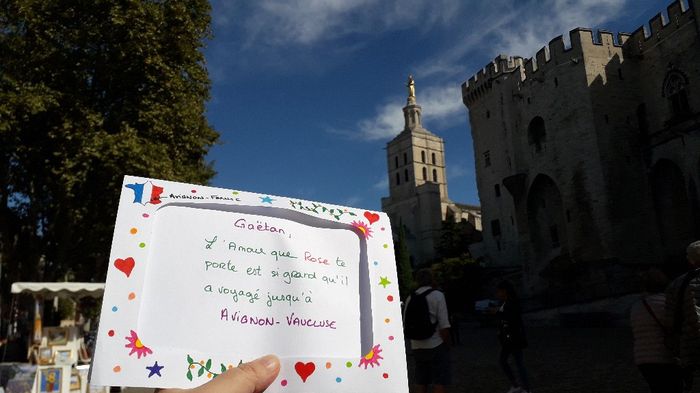 AVIGNON - FRANCE
Gaëtan,
L'Amour que Rose te
porte est si grand qu'il
a voyagé jusqu'à
AVIGNON - VAUCLUSE